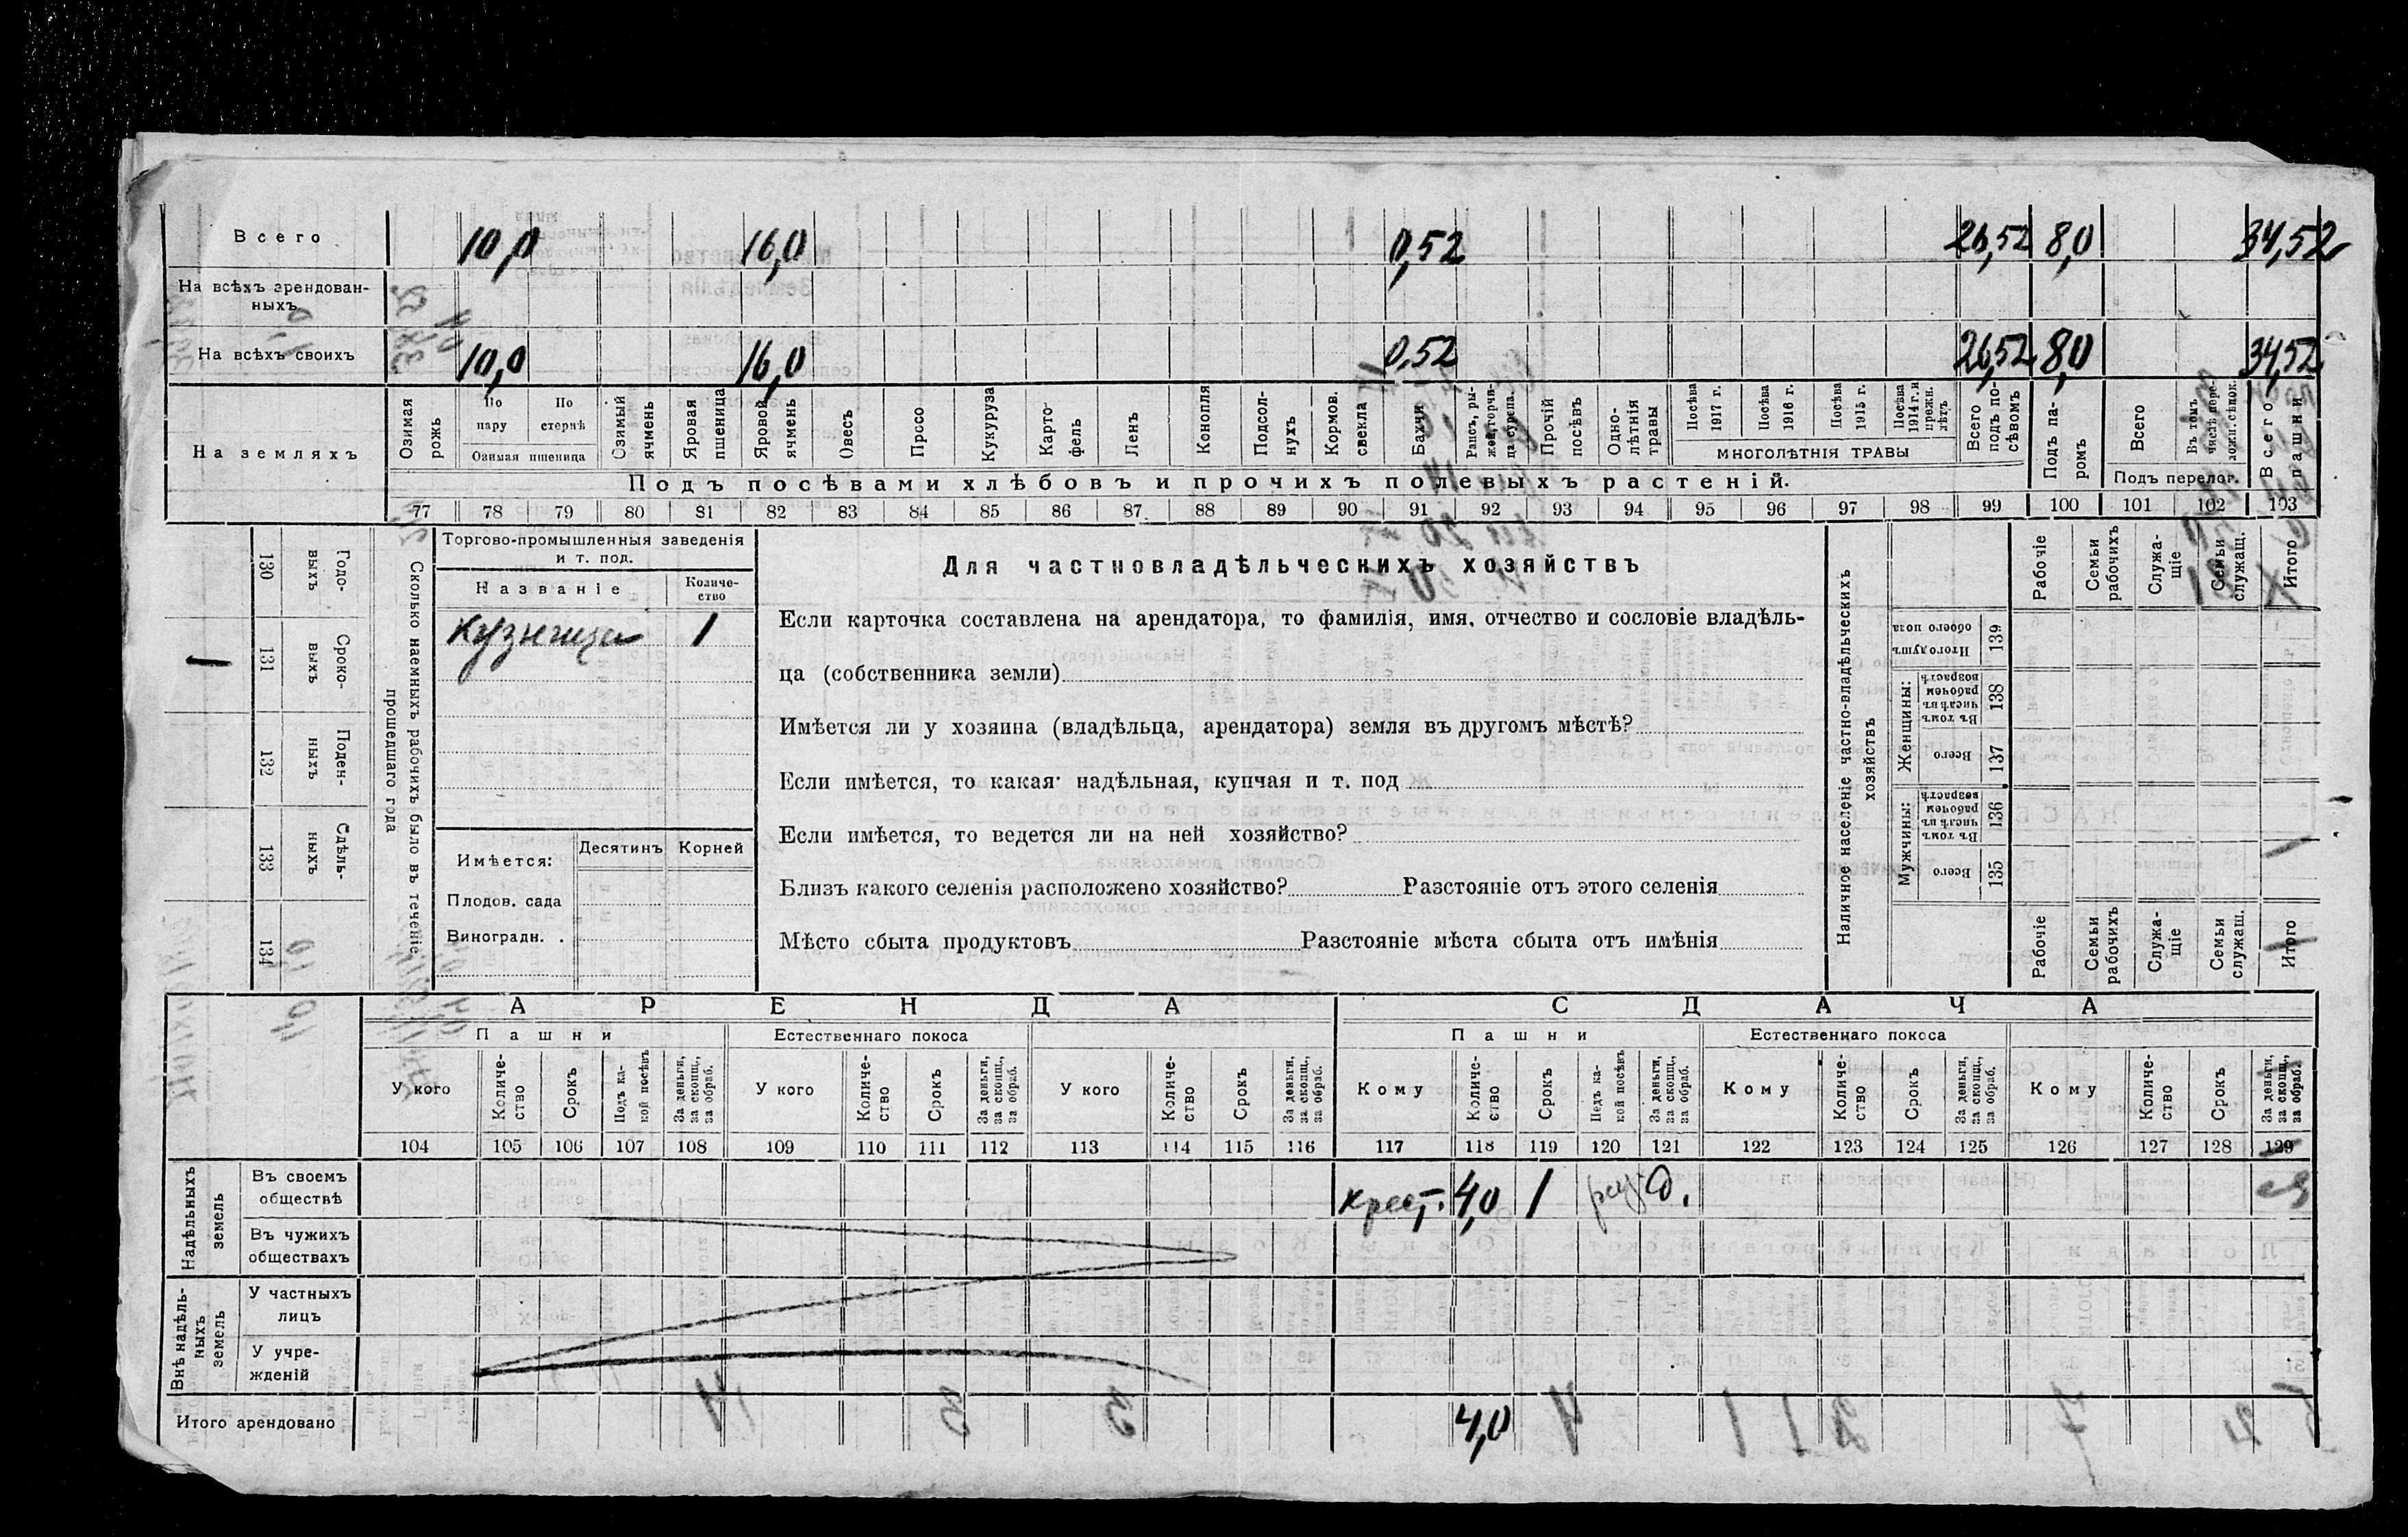 Всего 10,0 16,0 0,52 26,52 8,0 34,52
На всѣхъ арендован-
ныхъ
На всѣхъ своихъ 10,0 16,0 0,52 26,52 8,0 34,52
На земляхъ
Озимая рожь
По пару
По стернѣ
Озимая пшеница
Озимый ячмень
Яровая пшеница
Яровой ячмень
Овесъ
Просо
Кукуруза
Карто-
фель
Ленъ
Конопля
Подсол-
нухъ
Кормов. свекла
Бахчи
Рапсъ, ры-
жей, горчи-
ца, сурепа.
Прочій посѣвъ
Одно-
лѣтнія травы
Посѣва 1917 г.
Посѣва 1916 г.
Посѣва 1915 г.
Посѣва 1914 г. и прежн. лѣтъ
МНОГОЛѢТНІЯ ТРАВЫ
Всего подъ по-
сѣвомъ
Подъ па-
ромъ
Всего
Въ томъ числѣ пере-
ложн. сѣнок.
Подъ перелог.
Всего пашни
Подъ посѣвами хлѣбовъ и прочихъ полевыхъ растеній.
77 78 79 80 81 82 83 84 85 86 87 88 89 90 91 92 93 94 95 96 97 98 99 100 101 102 103
130 Годо-
выхъ
131 Сроко-
выхъ
132 Поден-
ныхъ
133 Сдѣль-
ныхъ
134
Сколько наемныхъ рабочихъ было въ теченіе
прошедшаго года
Торгово-промышленныя заведенія
и т. под.
Названіе Количе-
ство
Кузница 1
Имѣется: Десятинъ Корней
Плодов. сада
Виноградн. .
Для частновладѣльческихъ хозяйствъ
Если карточка составлена на арендатора, то фамилія, имя, отчество и сословіе владѣль-
ца (собственника земли)
Имѣется ли у хозяина (владѣльца, арендатора) земля въ другомъ мѣстѣ?
Если имѣется, то какая: надѣльная, купчая и т. под
Если имѣется, то ведется ли на ней хозяйство?
Близъ какого селенія расположено хозяйство? Разстояніе отъ этого селенія
Мѣсто сбыта продуктовъ Разстояніе мѣста сбыта отъ имѣнія
Наличное населеніе частно-владѣльческихъ
хозяйствъ
Рабочіе
Семьи рабочихъ
Служа-
щіе
Семьи служащ.
Итого
Итого душъ обоего пола 139
Женщины:
Въ томъ числѣ въ рабочемъ возрастѣ 138
Всего 137
Мужчины:
Въ томъ числѣ въ рабочемъ возрастѣ 136
Всего 135
Рабочіе
Семьи рабочихъ
Служа-
щіе
Семьи служащ.
Итого
АРЕНДА СДАЧА
Пашни Естественнаго покоса Пашни Естественнаго покоса
У кого
Количе-
ство
Срокъ
Подъ ка-
кой посѣвъ
За деньги, за скопщ., за обраб.
У кого
Количе-
ство
Срокъ
За деньги, за скопщ., за обраб.
У кого
Количе-
ство
Срокъ
За деньги, за скопщ., за обраб.
Кому
Количе-
ство
Срокъ
Подъ ка-
кой посѣвъ
За деньги, за скопщ., за обраб.
Кому
Количе-
ство
Срокъ
За деньги, за скопщ., за обраб.
Кому
Количе-
ство
Срокъ
За деньги, за скопщ., за обраб.
104 105 106 107 108 109 110 111 112 113 114 115 116 117 118 119 120 121 122 123 124 125 126 127 128 129
Надѣльныхъ земель
Въ своемъ
обществѣ крест. 4,0 1 д.
Въ чужихъ
обществахъ
Внѣ надѣль-
ныхъ земель
У частныхъ
лицъ
У учре-
жденій
Итого арендовано 4,0